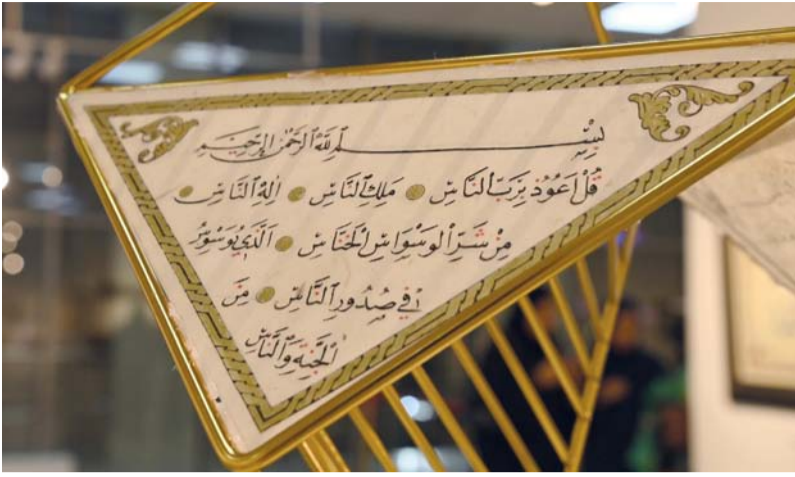 بِسْمِ ٱللَّهِ ٱلرَّحْمَٰنِ ٱلرَّحِيمِ
قُلْ أَعُوذُ بِرَبِّ ٱلنَّاسِ ۝ مَلِكِ ٱلنَّاسِ ۝ إِلَٰهِ ٱلنَّاسِ ۝
مِنْ شَرِّ ٱلْوَسْوَاسِ ٱلْخَنَّاسِ ۝ ٱلَّذِي يُوَسْوِسُ
فِي صُدُورِ ٱلنَّاسِ ۝ مِنَ
ٱلْجِنَّةِ وَٱلنَّاسِ